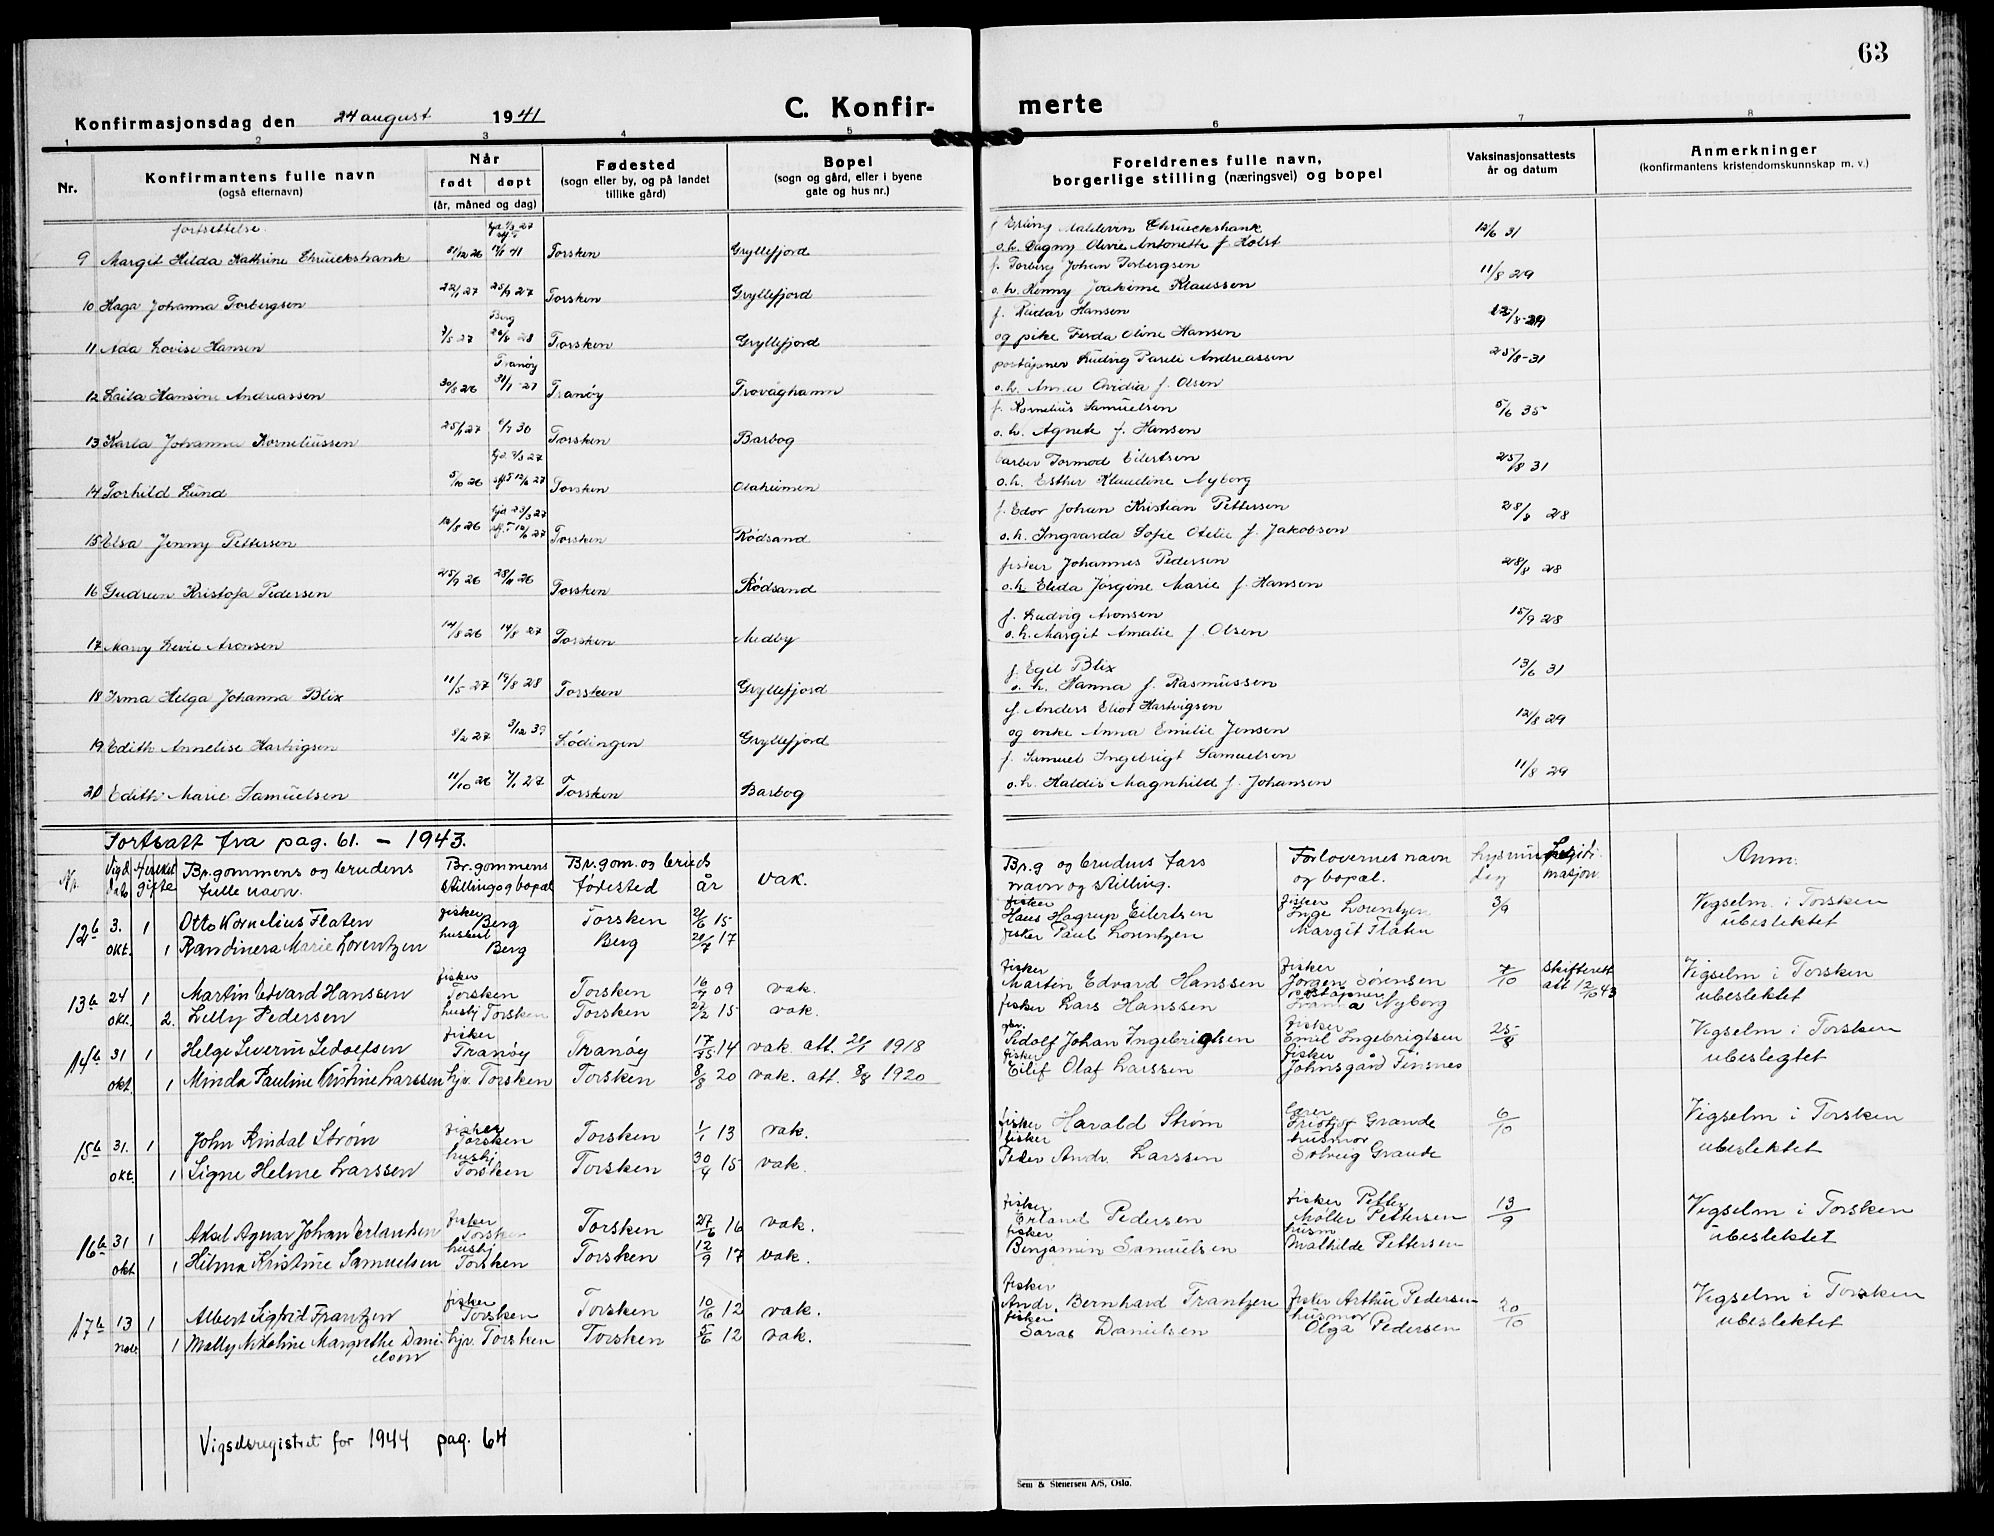 63
Konfirmasjonsdag den 24 august 1941 C. Konfir- merte
1 2 3 4 5 6 7 8
Nr. Konfirmantens fulle navn (også efternavn) Når født døpt (år, måned og dag) Fødested (sogn eller by, og på landet tillike gård) Bopel (sogn og gård, eller i byene gate og hus nr.) Foreldrenes fulle navn, borgerlige stilling (næringsvei) og bopel Vaksinasjonsattests år og datum Anmerkninger (konfirmantens kristendomskunnskap m. v.)
fortsettelse.
9 Margit Hilda Kathrine Chrueckshank 31/12 26 Torsken Gryllefjord f Erling Maldevin Chrueckshank 12/6 31
o.h. Dagny Olivie Antonette f. Holst
10 Haga Johanna Torbergsen 22/1 27 25/9 27 Torsken Gryllefjord f. Torberg Johan Torbergsen 11/8 29
o.h. Henny Joakime Klaussen
11 Ada Lovise Hansen 7/5 27 Berg 26/8 28 Torsken Gryllefjord f. Reidar Hansen 12/8-29
og pike Ferda Oline Hansen
12 Laila Hansine Andreassen 30/8 26 Tranöy 31/1-27 Tranöy Trovåghamn postöpner Ludvig Pareli Andreassen 25/8-31
o.h. Anna Ovidia f. Olsen
13 Karla Johanna Korneliussen 25/1 27 6/7 30 Torsken Barbog f. Kornelius Samuelsen 5/6 35
o.h. Agnete f. Hansen
14 Torhild Lund 5/10 26 Torsken Olaheimen barber Tormod Eilertsen 25/8 31
o.h. Esther Klaudine Nyborg
15 Elsa Jenny Pettersen 10/8 26 Torsken Rödsand f. Edor Johan Kristian Pettersen 28/8 28
o.h. Ingvarda Sofie Otelie f. Jakobsen
16 Gudrun Kristofa Pedersen 25/9 26 28/11 26 Torsken Rödsand fisker Johannes Pedersen 28/8 28
o.h. Elida Jörgine Marie f. Hansen
17 Mary Levie Aronsen 14/8 26 14/8 27 Torsken Medby f. Ludvig Aronsen 15/9 28
o.h. Margit Amalie f. Olsen
18 Irma Helga Johanna Blix 11/5 27 19/8 28 Torsken Gryllefjord f. Egil Blix 13/6 31
o.h. Hanna f. Rasmussen
19 Edith Annelise Hartvigsen 8/2 27 3/12 39 Lödingen Gryllefjord f. Anders Eliot Hartvigsen 12/8 29
og enke Anna Emilie Jensen
20 Edith Marie Samuelsen 11/10 26 7/1 27 Torsken Barbog f. Samuel Ingebrigt Samuelsen 11/8 29
o.h. Haldis Magnhild f. Johansen
Fortsatt fra pag. 61. – 1943.
Nr. Vigd dato Br.gommens og brudens fulle navn. Br.gommens stilling og bopæl Br.gom. og bruds fødested år vak. Br.g og brudens fars navn og stilling. Forlovernes navn og bopæl. Lysning dag Legitimasjon. Anm.
12b 3. okt. 1 Otto Kornelius Flaten fisker Berg Torsken 21/6 15 fisker Hans Hagrup Eilertsen fisker Inge Lorentzen 3/9 Vigselm. i Torsken
1 Randinera Marie Lorentzen Berg Berg 20/7 17 fisker Paul Lorentzen Margit Flaten ubeslektet
13b 24 okt. 1 Martin Edvard Hanssen fisker Torsken Torsken 16/7 09 vak. fisker Martin Edvard Hanssen fisker Jörgen Sörensen 7/10 Skifterett att 12/10 43 Vigselm i Torsken
2. Lilly Pedersen husbj Torsken Torsken 21/2 15 vak. fisker Lars Hanssen Nyborg ubeslektet
14b 31 okt. 1 Helge Severin Sedolfsen fisker Tranöy Tranöy 17/15 14 vak att. 20/1 1918 gbr. Sedolf Johan Ingebrigtsen fisker Emil Ingebrigtsen 25/8 Vigselm i Torsken
1 Minda Pauline Kristine Larssen hjv. Torsken Torsken 8/8 20 vak. att. 8/8 1920 fisker Eilif Olaf Larssen fisker Johnsgård Finsnes ubeslegtet
15b 31. okt. 1 John Rindal Strøm fisker Torsken Torsken 1/1 13 vak. fisker Harald Strøm lærer Fridtjof Grande 6/10 Vigselm i Torsken
1 Signe Helene Larssen husbj Torsken Torsken 30/4 15 vak. fisker Peder Andr. Larssen husmor Solveig Grande ubeslektet
16b 31 okt 1 Aksel Agnar Johan Erlandsen fisker Torsken Torsken 27/6 16 vak. fisker Erland Pedersen fisker Petter Møller Pettersen 13/9 Vigselm i Torsken
1 Hilma Kristine Samuelsen husbj Torsken Torsken 12/9 17 vak. fisker Benjamin Samuelsen husm Mathilde Pettersen ubeslektet
17b 13 nov. 1 Albert Sigfrid Frantzen fisker Torsken Torsken 10/6 12 vak. fisker Andr. Bernhard Frantzen fisker Arthur Pedersen 20/10 Vigselm i Torsken
1 Mally Nikoline Margrethe Danielsen hjv. Torsken Torsken 5/6 12 vak. fisker Saras Danielsen husmor Olga Pedersen ubeslektet
Vigselsregistret for 1944 pag. 64
Sem & Stenersen A/S, Oslo.